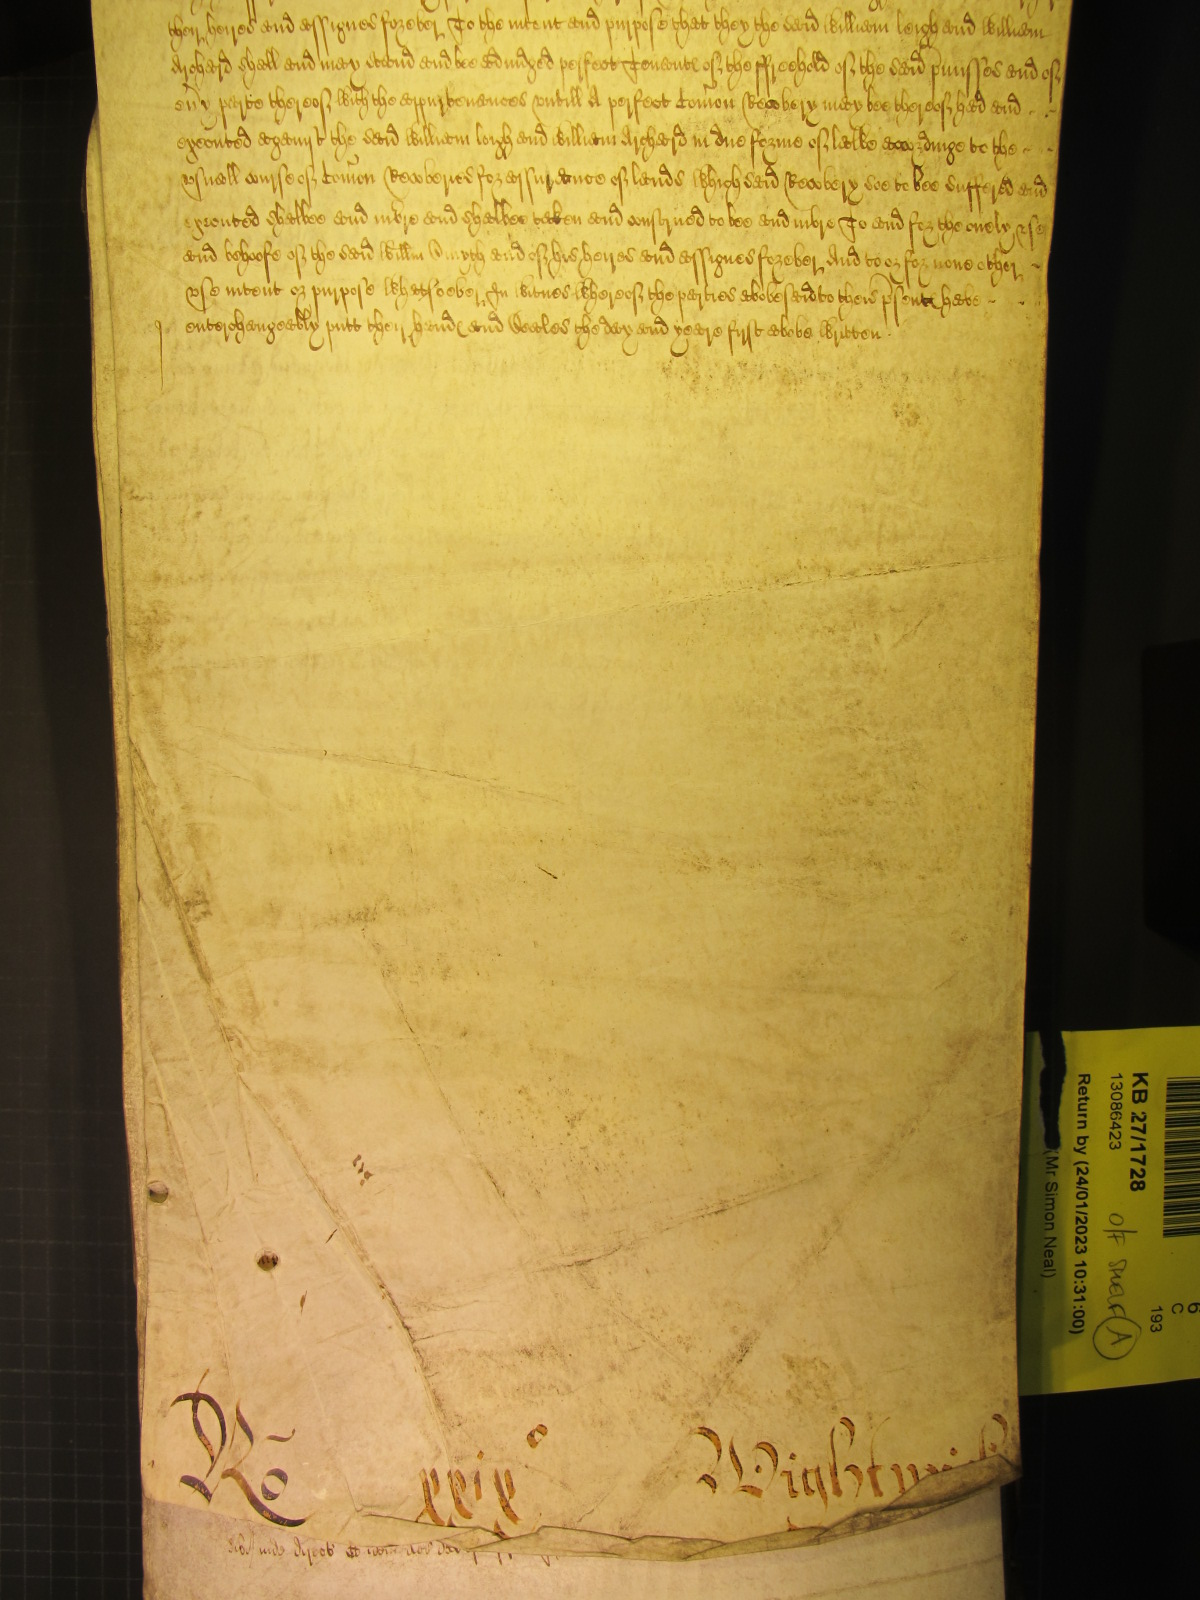 their heires and assignes forever To the intent and purpose that they the said William leigh and William
Archard shall and may stand and bee adiudged perfect Tenant of the ffreehold of the said pmisses and of
evy parte thereof with the appurtenances untill A perfect Comon Recovery may bee thereof had and
executed against the said William leigh and William Archard in due forme of lawe accordinge to the
usuall course of Comon Recoveries for assurance of lands which said Recovery soe to bee suffered and
executed shalbee and inure and shalbee taken and construed to bee and inure To and for the onely use
and behoofe of the said Willm Smyth and of his heires and assignes forever And to or for none other
use intent or purpose whatsoever In witnes whereof the parties abovesaid to theis psents have
enterchangeably putt their hands and Seales the day and yeare first above written
Ro xxix o Wightwick
KB 27/1728
13086423
Return by (24/01/2023 10:31:00)
(Mr Simon Neal)
O/F
A
193
C
6